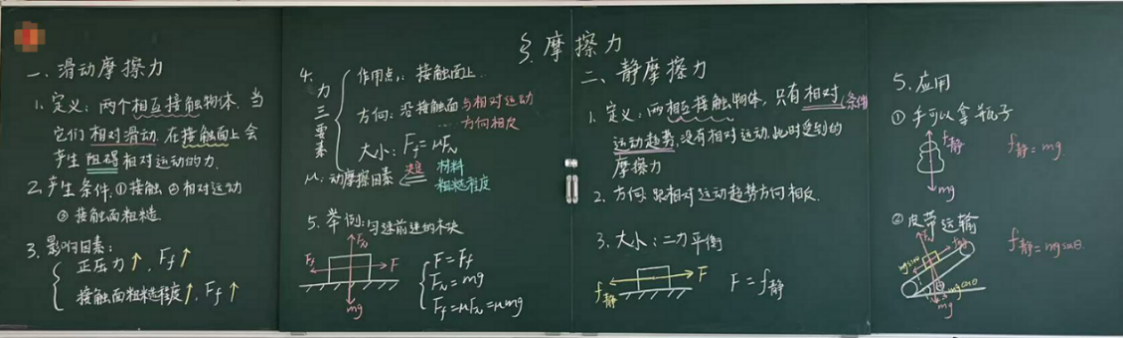 § 摩擦力
一、滑动摩擦力
1. 定义：两个相互接触物体. 当
它们相对滑动. 在接触面上会
产生阻碍相对运动的力.
2. 产生条件. ①接触 ②相对运动
③接触面粗糙.
3. 影响因素：
正压力↑, Ff↑
接触面粗糙程度↑, Ff↑
4. 力三要素
作用点: 接触面上.
方向: 沿接触面与相对运动
方向相反
大小: Ff = μFN
μ: 动摩擦因素 决定 材料
粗糙程度
5. 举例: 匀速前进的木块
FN
Ff
F
mg
F = Ff
FN = mg
Ff = μFN = μmg
二、静摩擦力
1. 定义: 两相互接触物体, 只有相对(条件
运动趋势, 没有相对运动. 此时受到的
摩擦力
2. 方向: 跟相对运动趋势方向相反.
3. 大小: 二力平衡
F
f静
F = f静
5. 应用
① 手可以拿瓶子
f静
f静 = mg
mg
② 皮带运输
FN
f静
mgsinθ
mgcosθ
θ
mg
f静 = mgsinθ